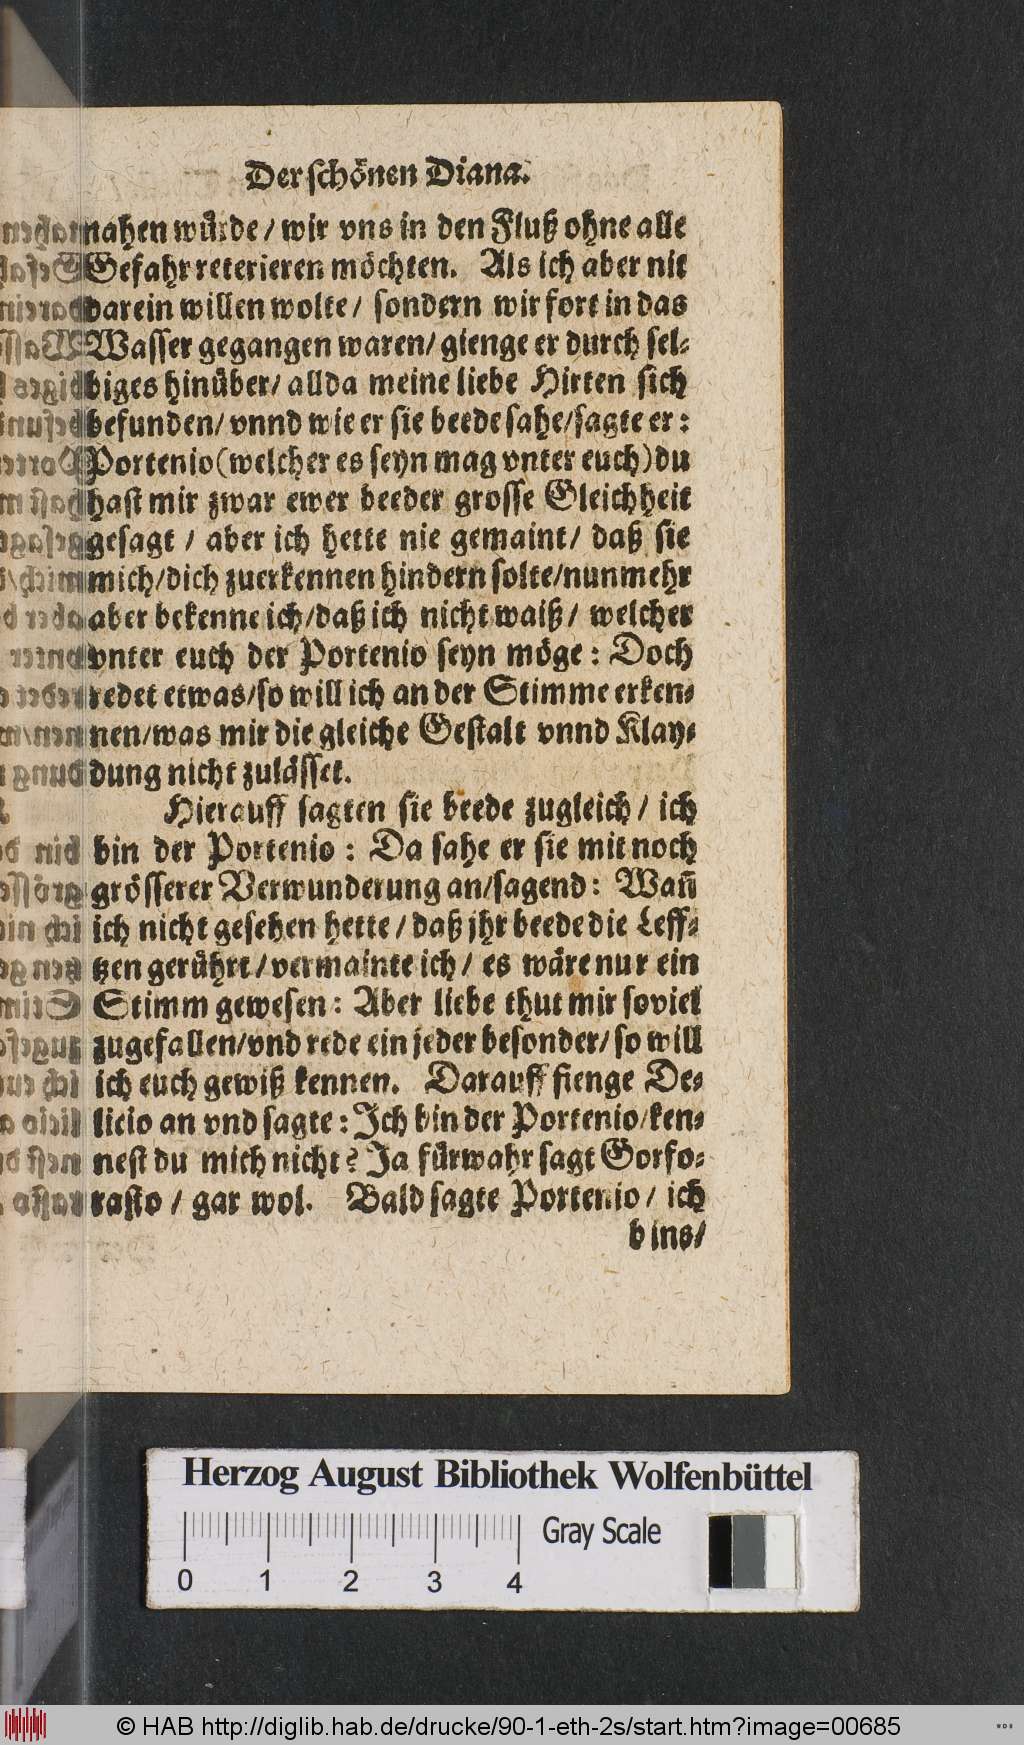 Der schönen Diana.
nahen würde / wir vns in den Fluß ohne alle
Gefahr reterieren möchten. Als ich aber nit
darein willen wolte / sondern wir fort in das
Wasser gegangen waren / gienge er durch sel-
biges hinüber / allda meine liebe Hirten sich
befunden / vnnd wie er sie beede sahe / sagte er:
Portenio (welcher es seyn mag vnter euch) du
hast mir zwar ewer beeder grosse Gleichheit
gesagt / aber ich hette nie gemaint / daß sie
mich / dich zuerkennen hindern solte / nunmehr
aber bekenne ich / daß ich nicht waiß / welcher
vnter euch der Portenio seyn möge: Doch
redet etwas / so will ich an der Stimme erken-
nen / was mir die gleiche Gestalt vnnd Klay-
dung nicht zulässet.
Hierauff sagten sie beede zugleich / ich
bin der Portenio: Da sahe er sie mit noch
grösserer Verwunderung an / sagend: Wañ
ich nicht gesehen hette / daß jhr beede die Leff-
tzen gerührt / vermainte ich / es wäre nur ein
Stimm gewesen: Aber liebe thut mir soviel
zugefallen / vnd rede ein jeder besonder / so will
ich euch gewiß kennen. Darauff fienge De-
licio an vnd sagte: Ich bin der Portenio / ken-
nest du mich nicht? Ja fürwahr sagt Gorfo-
rasto / gar wol. Bald sagte Portenio / ich
bins /
Herzog August Bibliothek Wolfenbüttel
Gray Scale
0 1 2 3 4
© HAB http://diglib.hab.de/drucke/90-1-eth-2s/start.htm?image=00685